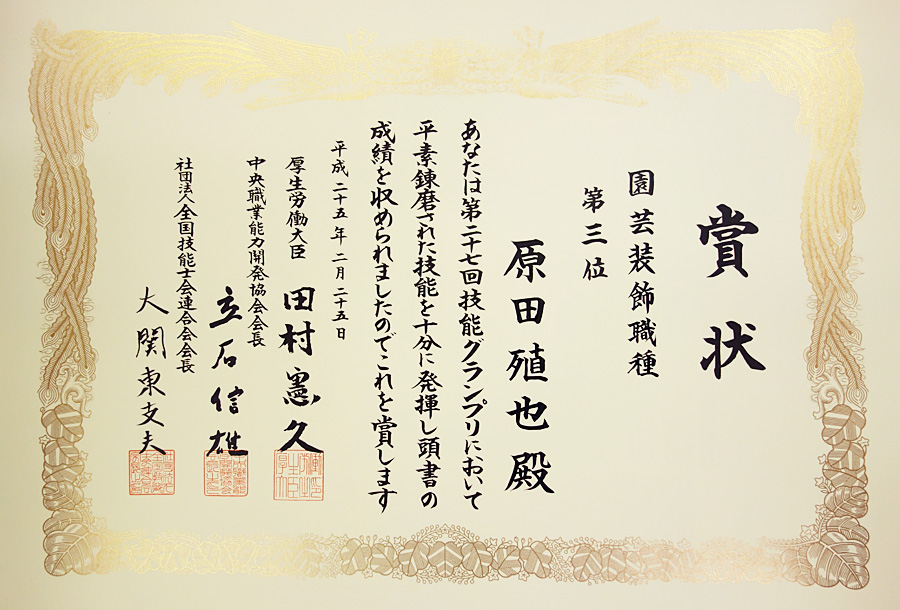 賞状
園芸装飾職種
第三位
原田殖也殿
あなたは第二十七回技能グランプリにおいて
平素錬磨された技能を十分に発揮し頭書の
成績を収められましたのでこれを賞します
平成二十五年二月二十五日
厚生労働大臣 田村憲久
中央職業能力開発協会会長 立石信雄
社団法人全国技能士会連合会会長 大関東支夫